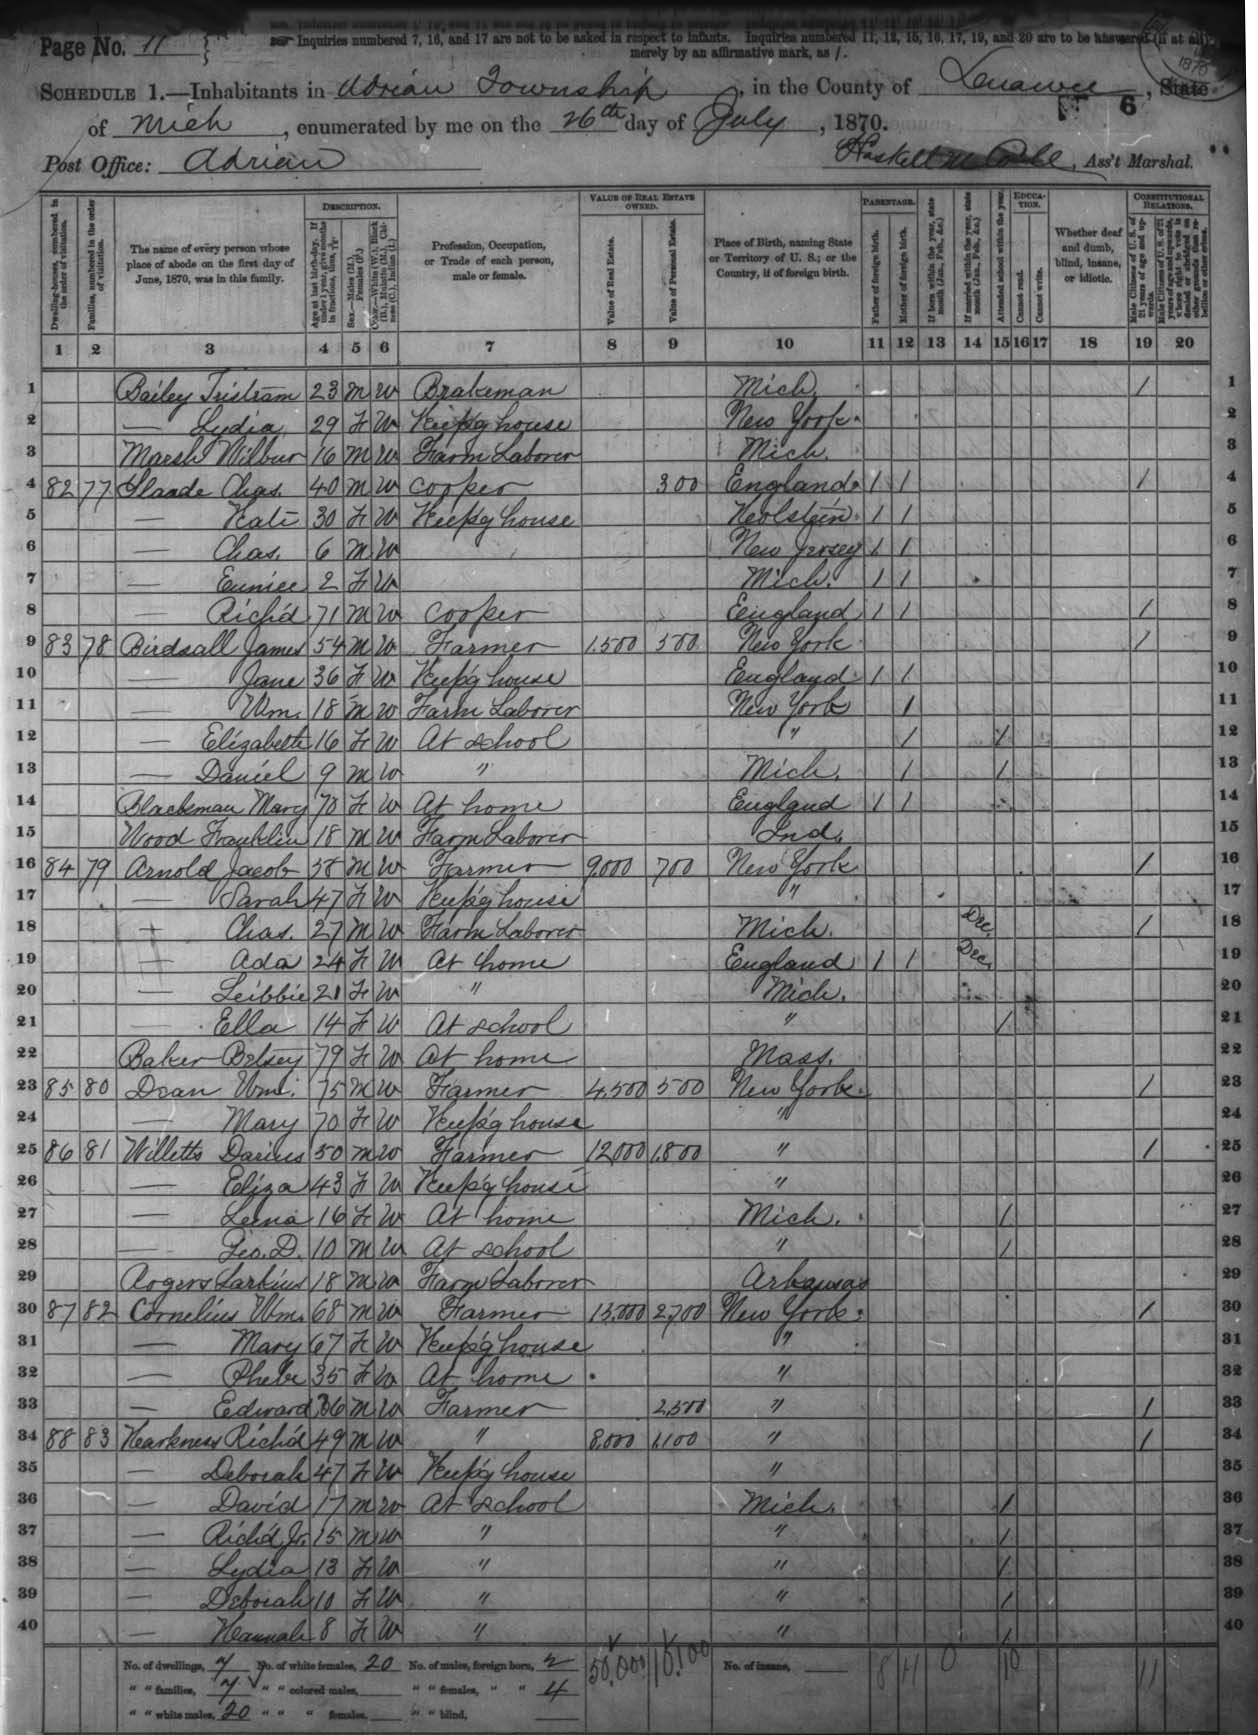 Page No. 11
Inquiries numbered 7, 16, and 17 are not to be asked in respect to infants. Inquiries numbered 11, 12, 15, 16, 17, 19, and 20 are to be answered (if at all)
merely by an affirmative mark, as /.
1870
SCHEDULE 1.—Inhabitants in Adrian Township, in the County of Lenawee, State
6
of Mich, enumerated by me on the 26th day of July, 1870.
Post Office: Adrian Haskell, Ass't Marshal.
Dwelling-houses, numbered in the order of visitation.
Families, numbered in the order of visitation.
The name of every person whose place of abode on the first day of June, 1870, was in this family.
DESCRIPTION.
Age at last birth-day. If under 1 year, give months in fractions, thus,
Sex.—Males (M.), Females (F.)
Color.—White (W.), Black (B.), Mulatto (M.), Chinese (C.), Indian (I.)
Profession, Occupation, or Trade of each person, male or female.
VALUE OF REAL ESTATE OWNED.
Value of Real Estate.
Value of Personal Estate.
Place of Birth, naming State or Territory of U. S.; or the Country, if of foreign birth.
PARENTAGE.
Father of foreign birth.
Mother of foreign birth.
If born within the year, state month (Jan., Feb., &c.)
If married within the year, state month (Jan., Feb., &c.)
Attended school within the year.
EDUCATION.
Cannot read.
Cannot write.
Whether deaf and dumb, blind, insane, or idiotic.
CONSTITUTIONAL RELATIONS.
Male Citizens of U. S. of 21 years of age and upwards.
Male Citizens of U. S. of 21 years of age and upwards, whose right to vote is denied or abridged on other grounds than rebellion or other crime.
1 2 3 4 5 6 7 8 9 10 11 12 13 14 15 16 17 18 19 20
1 Bailey Tristram 23 M W Brakeman Mich. / 1
2 — Lydia 29 F W Keep'g house New York 2
3 Marsh Wilbur 16 M W Farm Laborer Mich. 3
4 82 77 Chas. 40 M W Cooper 300 England / / / 4
5 — Kate 30 F W Keep'g house Holstein / / 5
6 — Chas. 6 M W New Jersey / / 6
7 — Eunice 2 F W Mich. / / 7
8 — Rich'd 71 M W Cooper England / / / 8
9 83 78 Birdsall James 54 M W Farmer 1,500 500 New York / 9
10 — Jane 36 F W Keep'g house England / / 10
11 — Wm. 18 M W Farm Laborer New York / 11
12 — Elizabeth 16 F W At school " / / 12
13 — Daniel 9 M W " Mich. / / 13
14 Blackman Mary 70 F W At home England / / 14
15 Wood Franklin 18 M W Farm Laborer Ind. 15
16 84 79 Arnold Jacob 58 M W Farmer 9,000 700 New York / 16
17 — Sarah 47 F W Keep'g house " 17
18 — Chas. 27 M W Farm Laborer Mich. Dec. / 18
19 — Ada 24 F W At home England / / Dec. 19
20 — Leibbie 21 F W " Mich. 20
21 — Ella 14 F W At school " / 21
22 Baker Betsey 79 F W At home Mass. 22
23 85 80 Dean Wm. 75 M W Farmer 4,500 500 New York / 23
24 — Mary 70 F W Keep'g house " 24
25 86 81 Willetts Darius 50 M W Farmer 12,000 1,800 " / 25
26 — Eliza 43 F W Keep'g house " 26
27 — Lena 16 F W At home Mich. / 27
28 — Geo. D. 10 M W At school " / 28
29 Rogers Larkins 18 M W Farm Laborer Arkansas 29
30 87 82 Cornelius Wm. 68 M W Farmer 15,000 2,700 New York / 30
31 — Mary 67 F W Keep'g house " 31
32 — Phebe 35 F W At home " 32
33 — Edward 36 M W Farmer 2,500 " / 33
34 88 83 Harkness Rich'd 49 M W " 8,000 1,100 " / 34
35 — Deborah 47 F W Keep'g house " 35
36 — David 17 M W At school Mich. / 36
37 — Rich'd Jr. 15 M W " " / 37
38 — Lydia 13 F W " " / 38
39 — Deborah 10 F W " " / 39
40 — Hannah 8 F W " " / 40
No. of dwellings, 7 No. of white females, 20 No. of males, foreign born, 2 50,000 10,100 No. of insane, 8 11 0 10 11
" " families, 7 " " colored males, " " females, " " 4
" " white males, 20 " " " females, " " blind,